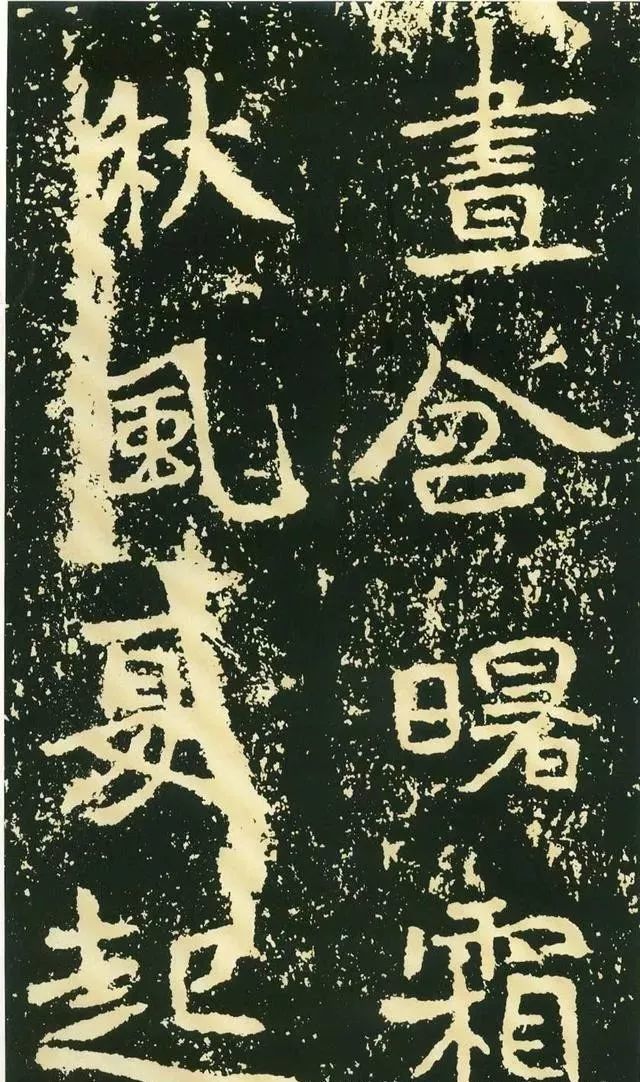 晝含曙霜
秋風夏起